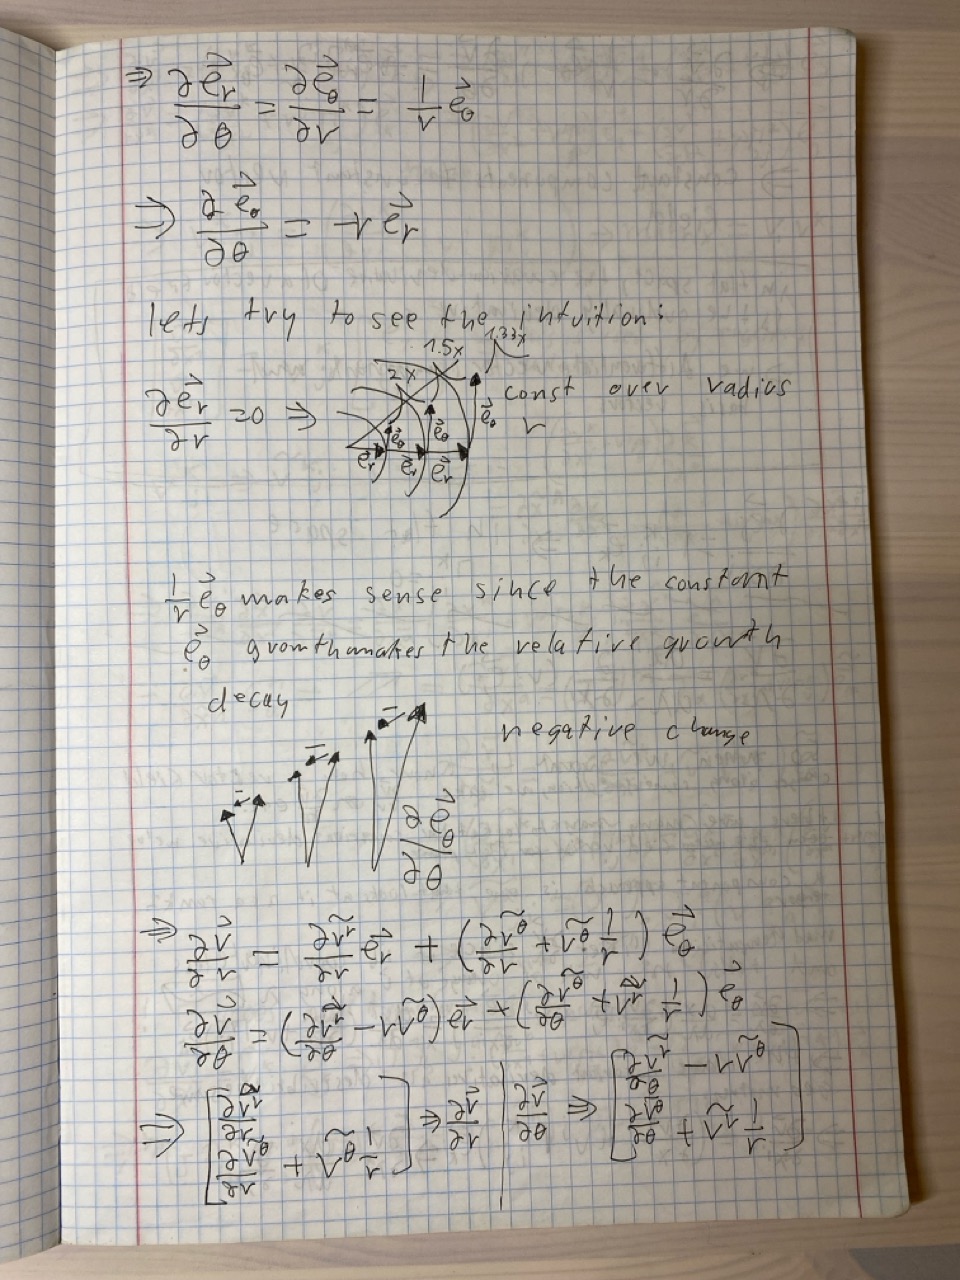 ⇒ ∂e⃗r/∂θ = ∂e⃗θ/∂r = 1/r e⃗θ
⇒ ∂e⃗θ/∂θ = -r e⃗r
lets try to see the intuition:
∂e⃗r/∂r =0 ⇒
2x 1.5x 1.33x
e⃗r e⃗θ e⃗r e⃗θ e⃗r e⃗θ
const over radius
r
1/r e⃗θ makes sense since the constant
e⃗θ growth makes the relative growth
decay
- - -
negative change
∂e⃗θ/∂θ
⇒ ∂v⃗/∂r = ∂ṽʳ/∂r e⃗r + (∂ṽᶿ/∂r + ṽᶿ 1/r) e⃗θ
∂v⃗/∂θ = (∂ṽʳ/∂θ - rṽᶿ) e⃗r + (∂ṽᶿ/∂θ + ṽʳ 1/r) e⃗θ
⇒ [∂ṽʳ/∂r
∂ṽᶿ/∂r + ṽᶿ 1/r] ⇒ ∂v⃗/∂r | ∂v⃗/∂θ ⇒ [∂ṽʳ/∂θ - rṽᶿ
∂ṽᶿ/∂θ + ṽʳ 1/r]